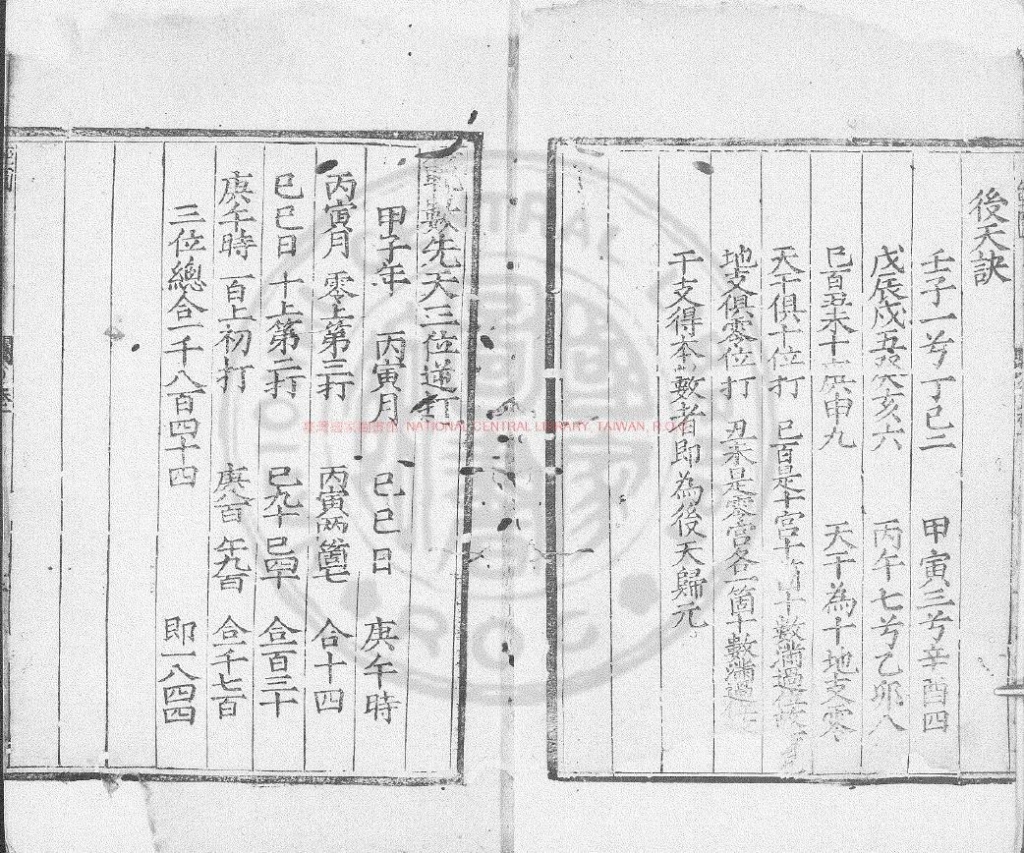 後天訣
壬子一兮丁巳二 甲寅三兮辛酉四
戊辰戌五癸亥六 丙午七兮乙卯八
己百丑未十庚申九 天干為十地支零
天干俱十位打 己百是十宮十箇十數滿過
地支俱零位打 丑未是零宮各一箇十數滿過
干支得本數者即為後天歸元
數先天三位逆打
甲子年 丙寅月 己巳日 庚午時
丙寅月 零上第三打 丙寅兩箇七 合十四
己巳日 十上第二打 己九十巳四十 合一百三十
庚午時 一百上初打 庚八百 午九百 合一千七百
三位總合一千八百四十四 即一八四四
臺灣國家圖書館 NATIONAL CENTRAL LIBRARY, TAIWAN, R.O.C